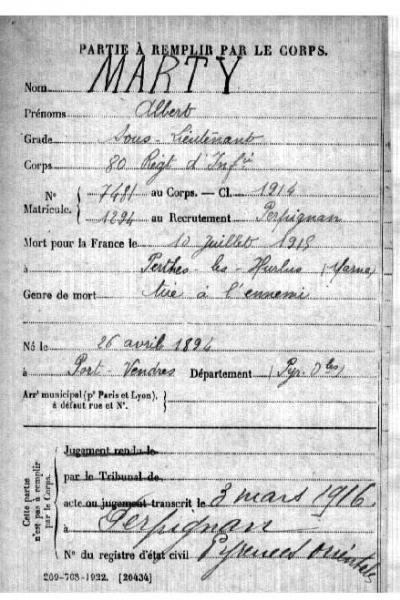 PARTIE À REMPLIR PAR LE CORPS.
MARTY
Nom
Prénoms Albert
Grade Sous-Lieutenant
Corps 80 Régt d'Infie
N° Matricule. { 7481 au Corps. — Cl. 1914
1294 au Recrutement Perpignan
Mort pour la France le 10 Juillet 1915
à Perthes-les-Hurlus (Marne)
Genre de mort tué à l'ennemi
Né le 26 avril 1894
à Port-Vendres Département (Pyr. Oles)
Arrt municipal (pr Paris et Lyon), à défaut rue et N°. }
Cette partie n'est pas à remplir par le Corps.
Jugement rendu le
par le Tribunal de
acte ou jugement transcrit le 3 mars 1916
à Perpignan
N° du registre d'état civil Pyrénées Orientales
209-708-1922. [26434]